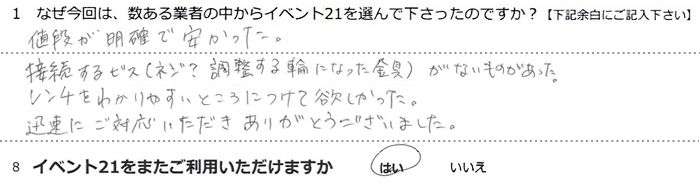 1 なぜ今回は、数ある業者の中からイベント21を選んで下さったのですか？【下記余白にご記入下さい】
値段が明確で安かった。
接続するビス(ネジ？調整する輪になった金具)がないものがあった。
レンチをわかりやすいところにつけて欲しかった。
迅速にご対応いただきありがとうございました。
8 イベント21をまたご利用いただけますか はい いいえ